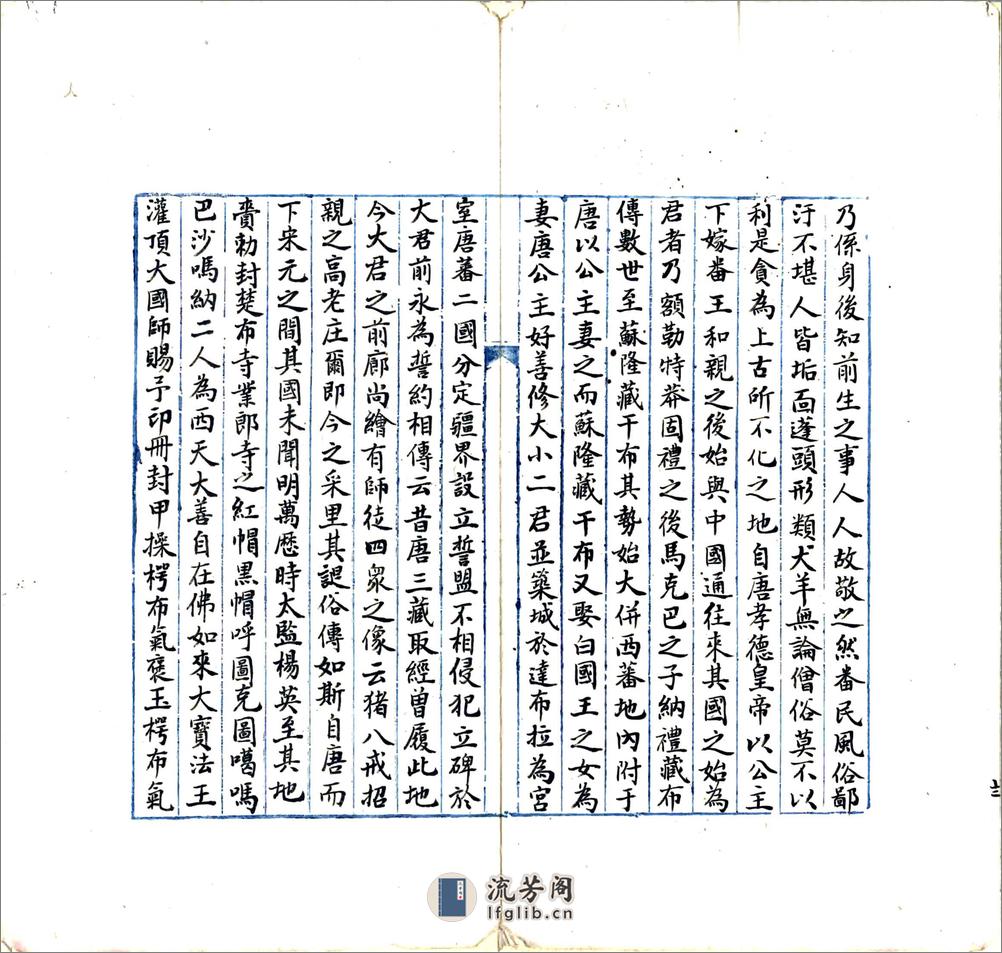 乃係身後知前生之事人人故敬之然番民風俗鄙
汙不堪人皆垢面蓬頭形類犬羊無論僧俗莫不以
利是貪為上古所不化之地自唐孝德皇帝以公主
下嫁番王和親之後始與中國通往來其國之始為
君者乃額勒特莽固禮之後馬克巴之子納禮藏布
傳數世至蘇隆藏干布其勢始大併西蕃地內附于
唐以公主妻之而蘇隆藏干布又娶白國王之女為
妻唐公主好善修大小二君並築城於達布拉為宮
室唐蕃二國分定疆界設立誓盟不相侵犯立碑於
大君前永為誓約相傳云昔唐三藏取經曾履此地
今大君之前廊尚繪有師徒四衆之像云猪八戒招
親之高老庄爾即今之采里其謎俗傳如斯自唐而
下宋元之間其國未聞明萬歷時太監楊英至其地
賷勅封楚布寺業郎寺之紅帽黑帽呼圖克圖噶嗎
巴沙嗎納二人為西天大善自在佛如來大寶法王
灌頂大國師賜予印冊封甲操楞布氣褒玉楞布氣
流芳阁
lfglib.cn